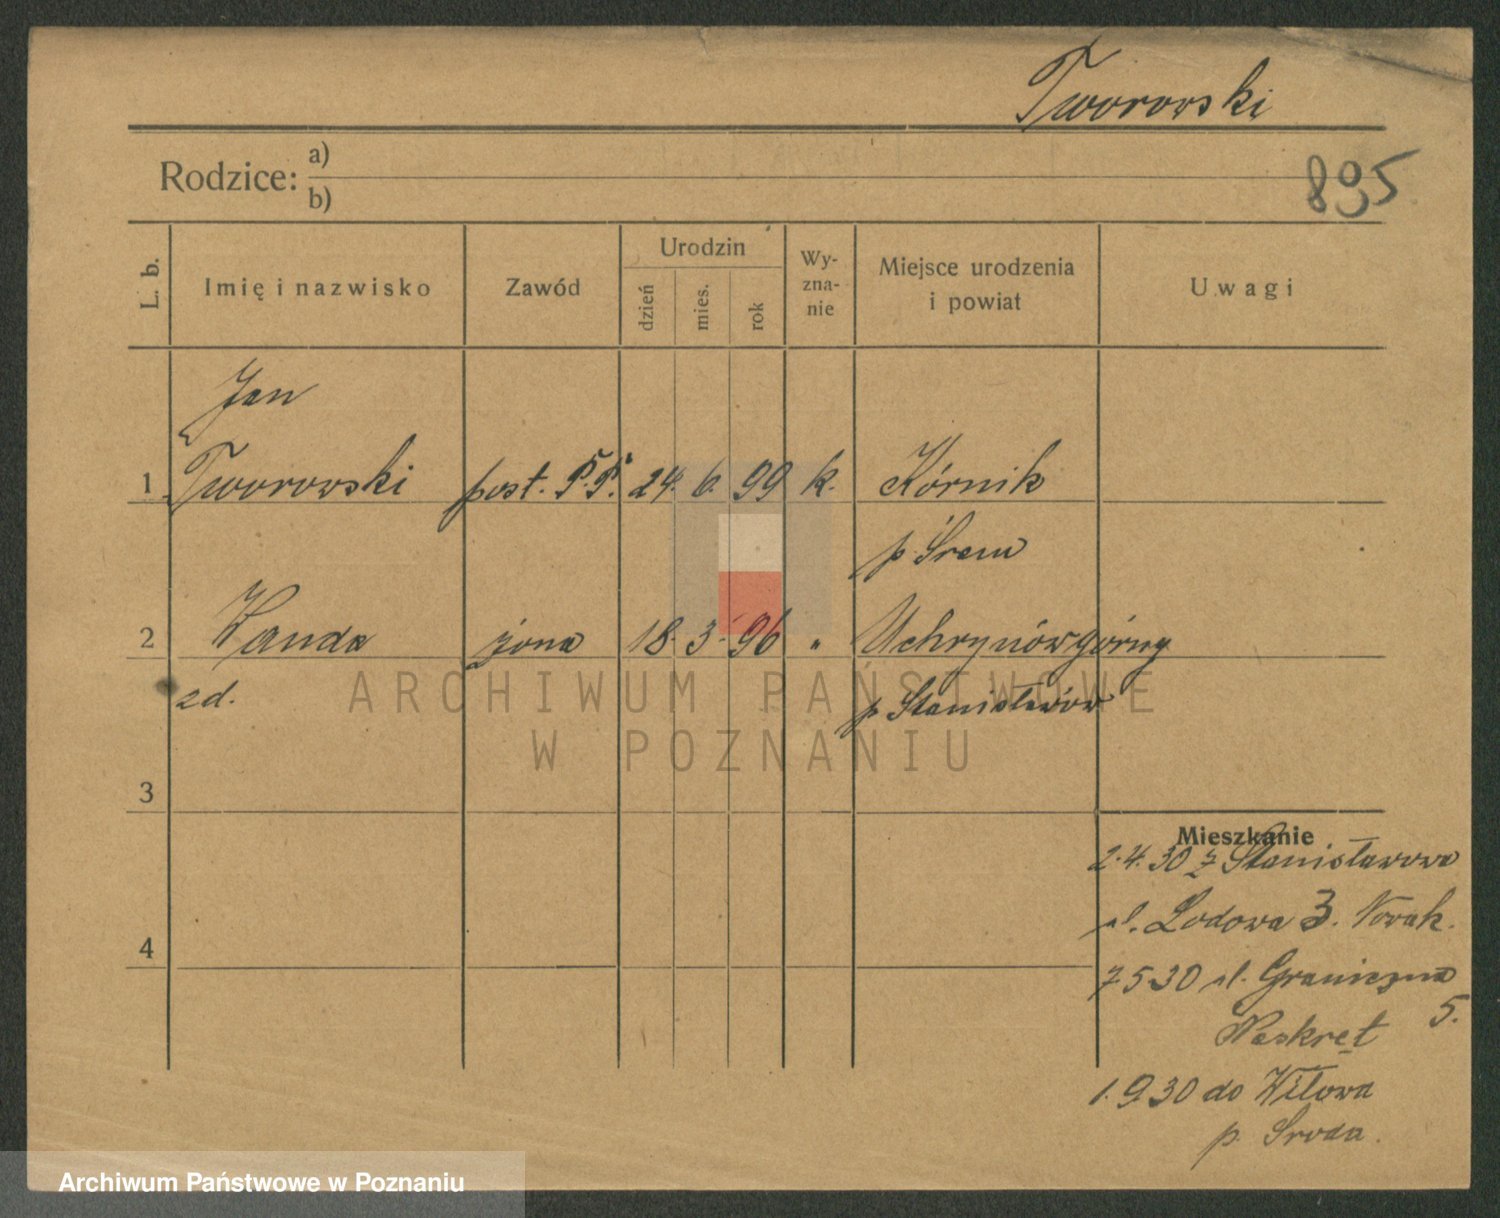 Tworowski
Rodzice: a)
b)
895
L. b.
Imię i nazwisko
Zawód
Urodzin
dzień
mies.
rok
Wy-
zna-
nie
Miejsce urodzenia
i powiat
Uwagi
Jan
1 Tworowski post. P.P. 24. 6. 99 k. Kórnik
p Śrem
2 Wanda żona 18. 3. 96 " Uchrynów górny
zd. p Stanisławów
ARCHIWUM PAŃSTWOWE
W POZNANIU
3
Mieszkanie
2.4.30 z Stanisławowa
ul. Lodowa 3. Nowak.
4
7530 ul. Graniczna
5.
Naskręt
1.930 do Witowa
p. Sroda.
Archiwum Państwowe w Poznaniu